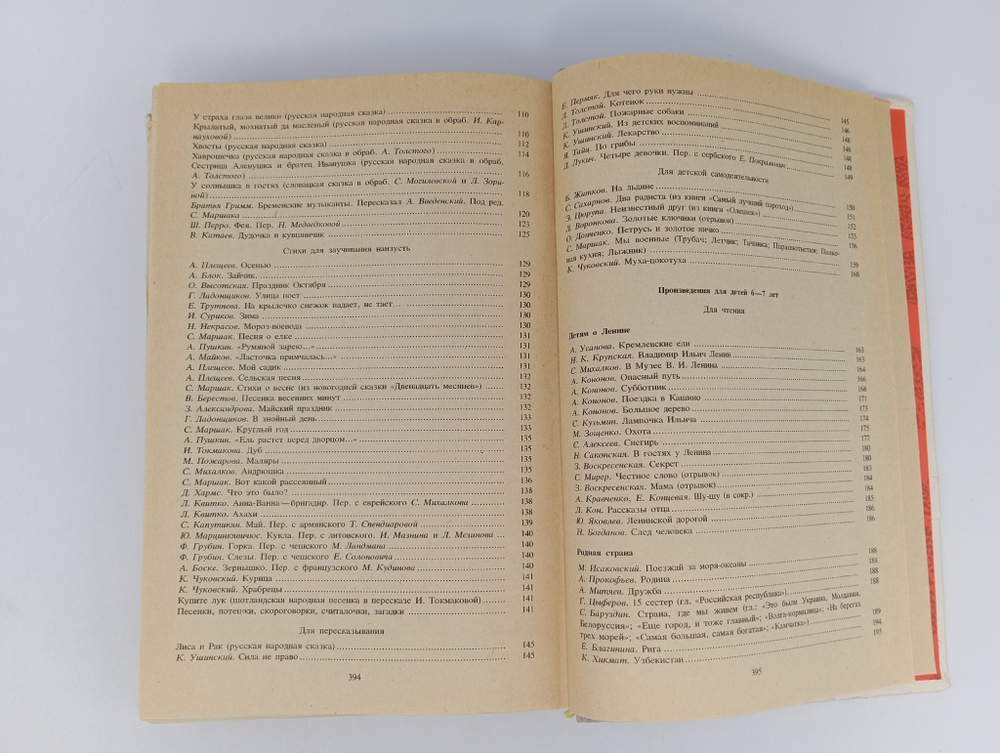 У страха глаза велики (русская народная сказка) 110
Крылатый, мохнатый да масленый (русская народная сказка в обраб. И. Кар-
науховой) 110
Хвосты (русская народная сказка) 112
Хаврошечка (русская народная сказка в обраб. А. Толстого) 114
Сестрица Аленушка и братец Иванушка (русская народная сказка в обраб.
А. Толстого) 116
У солнышка в гостях (словацкая сказка в обраб. С. Могилевской и Л. Зори-
ной) 118
Братья Гримм. Бременские музыканты. Пересказал А. Введенский. Под ред.
С. Маршака 120
Ш. Перро. Фея. Пер. Н. Медведковой 123
В. Катаев. Дудочка и кувшинчик 125
Стихи для заучивания наизусть
А. Плещеев. Осенью 129
А. Блок. Зайчик. 129
О. Высотская. Праздник Октября 129
Г. Ладонщиков. Улица поет 130
Е. Трутнева. На крылечко снежок падает, не тает 130
И. Суриков. Зима 130
Н. Некрасов. Мороз-воевода 130
С. Маршак. Песня о елке 131
А. Пушкин. «Румяной зарею...» 131
А. Майков. «Ласточка примчалась...» 131
А. Плещеев. Мой садик 131
А. Плещеев. Сельская песня 132
С. Маршак. Стихи о весне (из новогодней сказки «Двенадцать месяцев») 132
В. Берестов. Песенка весенних минут 132
З. Александрова. Майский праздник 132
Г. Ладонщиков. В знойный день 133
С. Маршак. Круглый год 133
А. Пушкин. «Ель растет перед дворцом...» 135
И. Токмакова. Дуб 135
М. Пожарова. Маляры 135
С. Михалков. Андрюшка 135
С. Маршак. Вот какой рассеянный 136
Д. Хармс. Что это было? 138
Л. Квитко. Анна-Ванна — бригадир. Пер. с еврейского С. Михалкова 138
Л. Квитко. Ахахи 138
С. Капутикян. Май. Пер. с армянского Т. Спендиаровой 139
Ю. Марцинкявичюс. Кукла. Пер. с литовского. И. Мазнина и Л. Мезинова 140
Ф. Грубин. Горка. Пер. с чешского М. Ландмана 140
Ф. Грубин. Слезы. Пер. с чешского Е. Солоновича 140
А. Боске. Зернышко. Пер. с французского М. Кудинова 140
К. Чуковский. Курица 141
К. Чуковский. Храбрецы 141
Купите лук (шотландская народная песенка в пересказе И. Токмаковой) 141
Песенки, потешки, скороговорки, считалочки, загадки 141
Для пересказывания
Лиса и Рак (русская народная сказка) 145
К. Ушинский. Сила не право 145
394
Е. Пермяк. Для чего руки нужны
Л. Толстой. Котенок 145
Л. Толстой. Пожарные собаки 146
К. Ушинский. Из детских воспоминаний 148
К. Ушинский. Лекарство 148
Я. Тайц. По грибы 148
Д. Лукич. Четыре девочки. Пер. с сербского Е. Покрамович 149
Для детской самодеятельности
Б. Житков. На льдине 150
С. Сахарнов. Два радиста (из книги «Самый лучший пароход») 151
Э. Цюрупа. Неизвестный друг (из книги «Олешек») 152
Л. Воронкова. Золотые ключики (отрывок) 155
О. Донченко. Петрусь и золотое яичко 156
С. Маршак. Мы военные (Трубач; Летчик; Тачанка; Парашютистки; Полко-
вая кухня; Лыжник) 159
К. Чуковский. Муха-цокотуха 160
Произведения для детей 6—7 лет
Для чтения
Детям о Ленине
А. Усанова. Кремлевские ели 163
Н. К. Крупская. Владимир Ильич Ленин 163
С. Михалков. В Музее В. И. Ленина 164
А. Кононов. Опасный путь 166
А. Кононов. Субботник 168
А. Кононов. Поездка в Кашино 171
А. Кононов. Большое дерево 173
С. Кузьмин. Лампочка Ильича 174
М. Зощенко. Охота 175
С. Алексеев. Снегирь 177
Н. Саконская. В гостях у Ленина 180
З. Воскресенская. Секрет 180
С. Мирер. Честное слово (отрывок) 183
З. Воскресенская. Мама (отрывок) 184
А. Кравченко, Е. Концевая. Шу-шу (в сокр.) 184
Л. Кон. Рассказы отца 185
Ю. Яковлев. Ленинской дорогой 186
Н. Богданов. След человека 186
Родная страна
М. Исаковский. Поезжай за моря-океаны 188
А. Прокофьев. Родина 188
А. Митяев. Дружба 188
Г. Цыферов. 15 сестер (гл. «Российская республика»).
С. Баруздин. Страна, где мы живем (гл.: «Это были Украина, Молдавия,
Белоруссия»; «Еще город, и тоже главный»; «Волга-кормилица»; «На берегах
трех морей»; «Самая большая, самая богатая»; «Камчатка») 189
Е. Благинина. Рига 194
К. Хикмат. Узбекистан 195
395